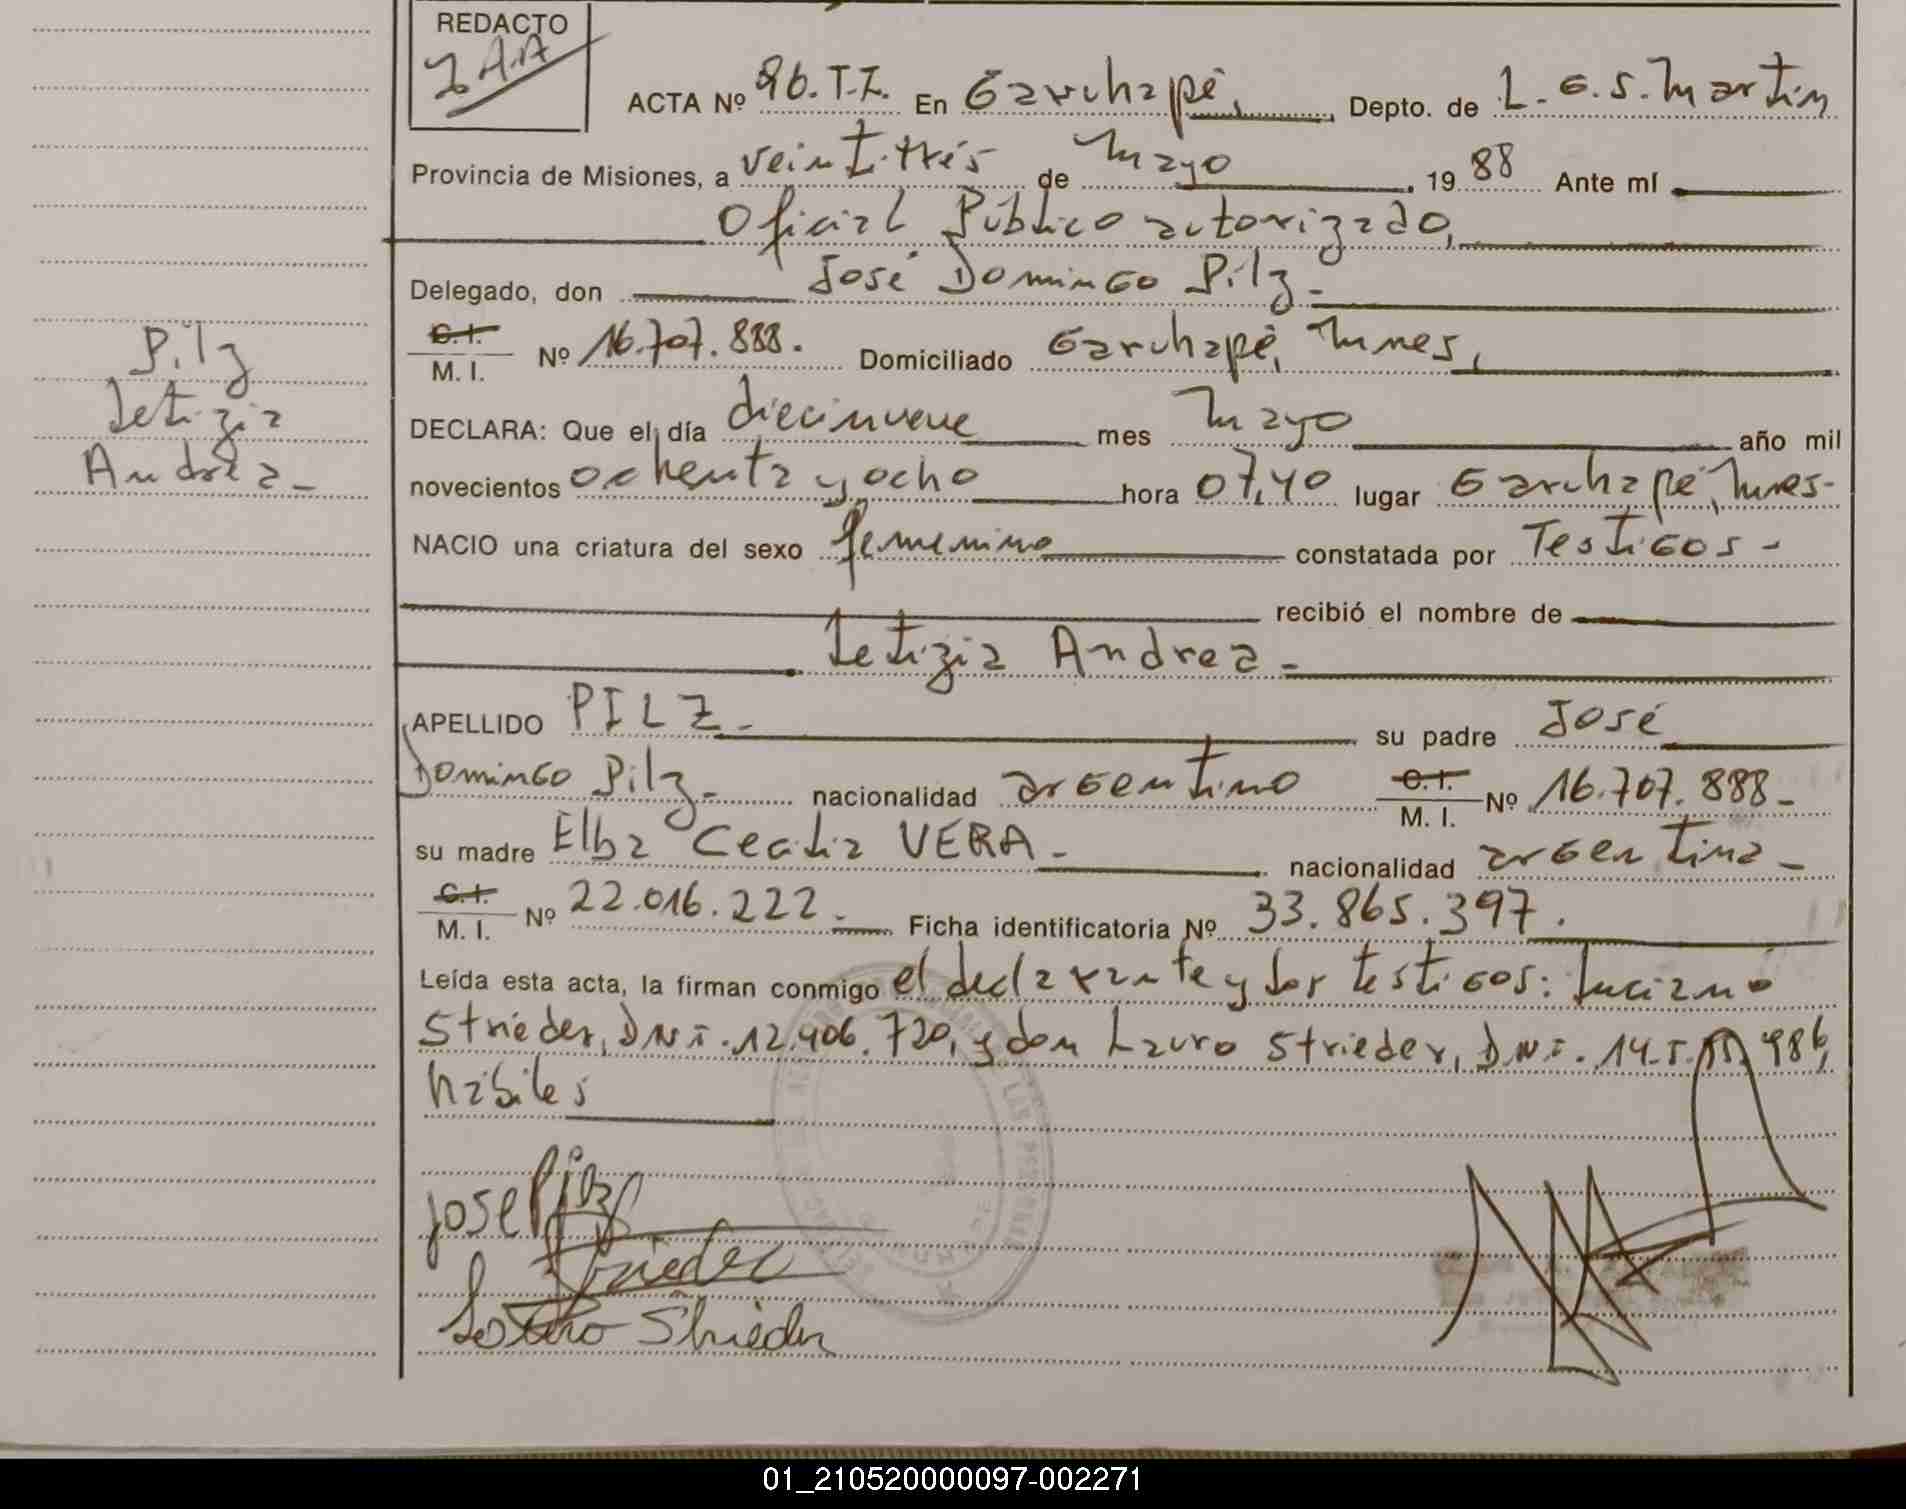 REDACTO
ACTA Nº 96.T.I. En Garuhapé, Depto. de L.G.S.Martín
Provincia de Misiones, a veintitrés de Mayo 1988 Ante mí
Oficial Público autorizado,
Delegado, don José Domingo Pilz-
C.I.
M. I. Nº 16.707.888. Domiciliado Garuhapé, Mnes,
DECLARA: Que el día diecinueve mes Mayo año mil
novecientos ochenta y ocho hora 07,40 lugar Garuhapé, Mnes-
NACIO una criatura del sexo femenino constatada por Testigos-
recibió el nombre de
Letizia Andrea-
APELLIDO PILZ- su padre José
Domingo Pilz- nacionalidad argentino C.I. M. I. Nº 16.707.888-
su madre Elba Cecilia VERA- nacionalidad argentina-
C.I.
M. I. Nº 22.016.222- Ficha identificatoria Nº 33.865.397.
Leída esta acta, la firman conmigo el declarante y los testigos: Luciano
Strieder, DNI.12.406.720, y don Lauro Strieder, DNI.14. 986,
hábiles
Jose Pilz
Strieder
Strieder
Pilz
Letizia
Andrea-
01_210520000097-002271